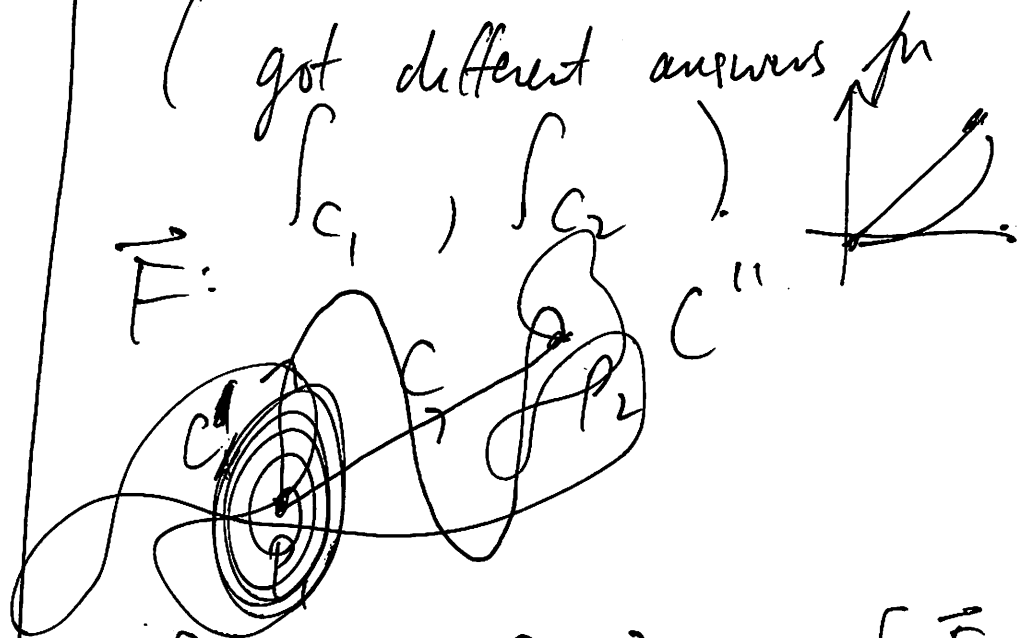 ( got different answers for
∫_{C_1} , ∫_{C_2} ).
\vec{F}:
C''
C
C'
P_2
∫ \vec{F}